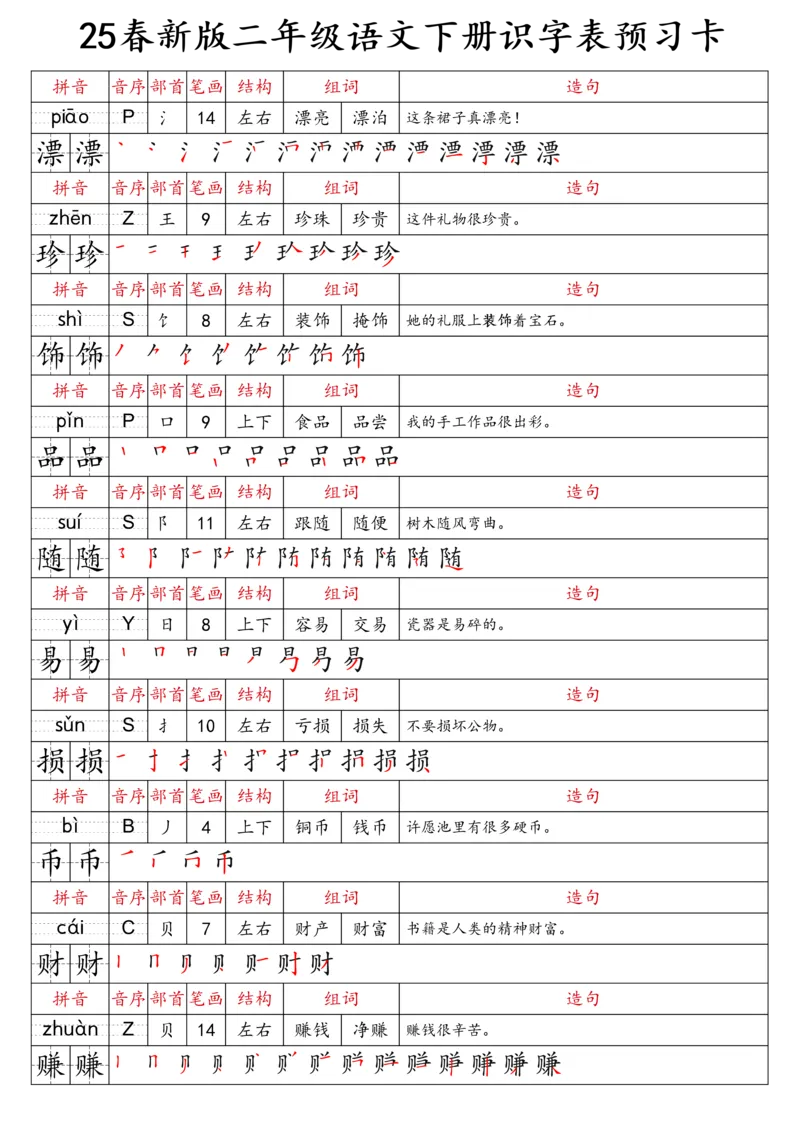 25春新版二年级语文下册识字表预习卡
拼音 音序 部首 笔画 结构 组词 造句
piāo P 氵 14 左右 漂亮 漂泊 这条裙子真漂亮！
漂 漂
拼音 音序 部首 笔画 结构 组词 造句
zhēn Z 王 9 左右 珍珠 珍贵 这件礼物很珍贵。
珍 珍
拼音 音序 部首 笔画 结构 组词 造句
shì S 饣 8 左右 装饰 掩饰 她的礼服上装饰着宝石。
饰 饰
拼音 音序 部首 笔画 结构 组词 造句
pǐn P 口 9 上下 食品 品尝 我的手工作品很出彩。
品 品
拼音 音序 部首 笔画 结构 组词 造句
suí S 阝 11 左右 跟随 随便 树木随风弯曲。
随 随
拼音 音序 部首 笔画 结构 组词 造句
yì Y 日 8 上下 容易 交易 瓷器是易碎的。
易 易
拼音 音序 部首 笔画 结构 组词 造句
sǔn S 扌 10 左右 亏损 损失 不要损坏公物。
损 损
拼音 音序 部首 笔画 结构 组词 造句
bì B 丿 4 上下 铜币 钱币 许愿池里有很多硬币。
币 币
拼音 音序 部首 笔画 结构 组词 造句
cái C 贝 7 左右 财产 财富 书籍是人类的精神财富。
财 财
拼音 音序 部首 笔画 结构 组词 造句
zhuàn Z 贝 14 左右 赚钱 净赚 赚钱很辛苦。
赚 赚